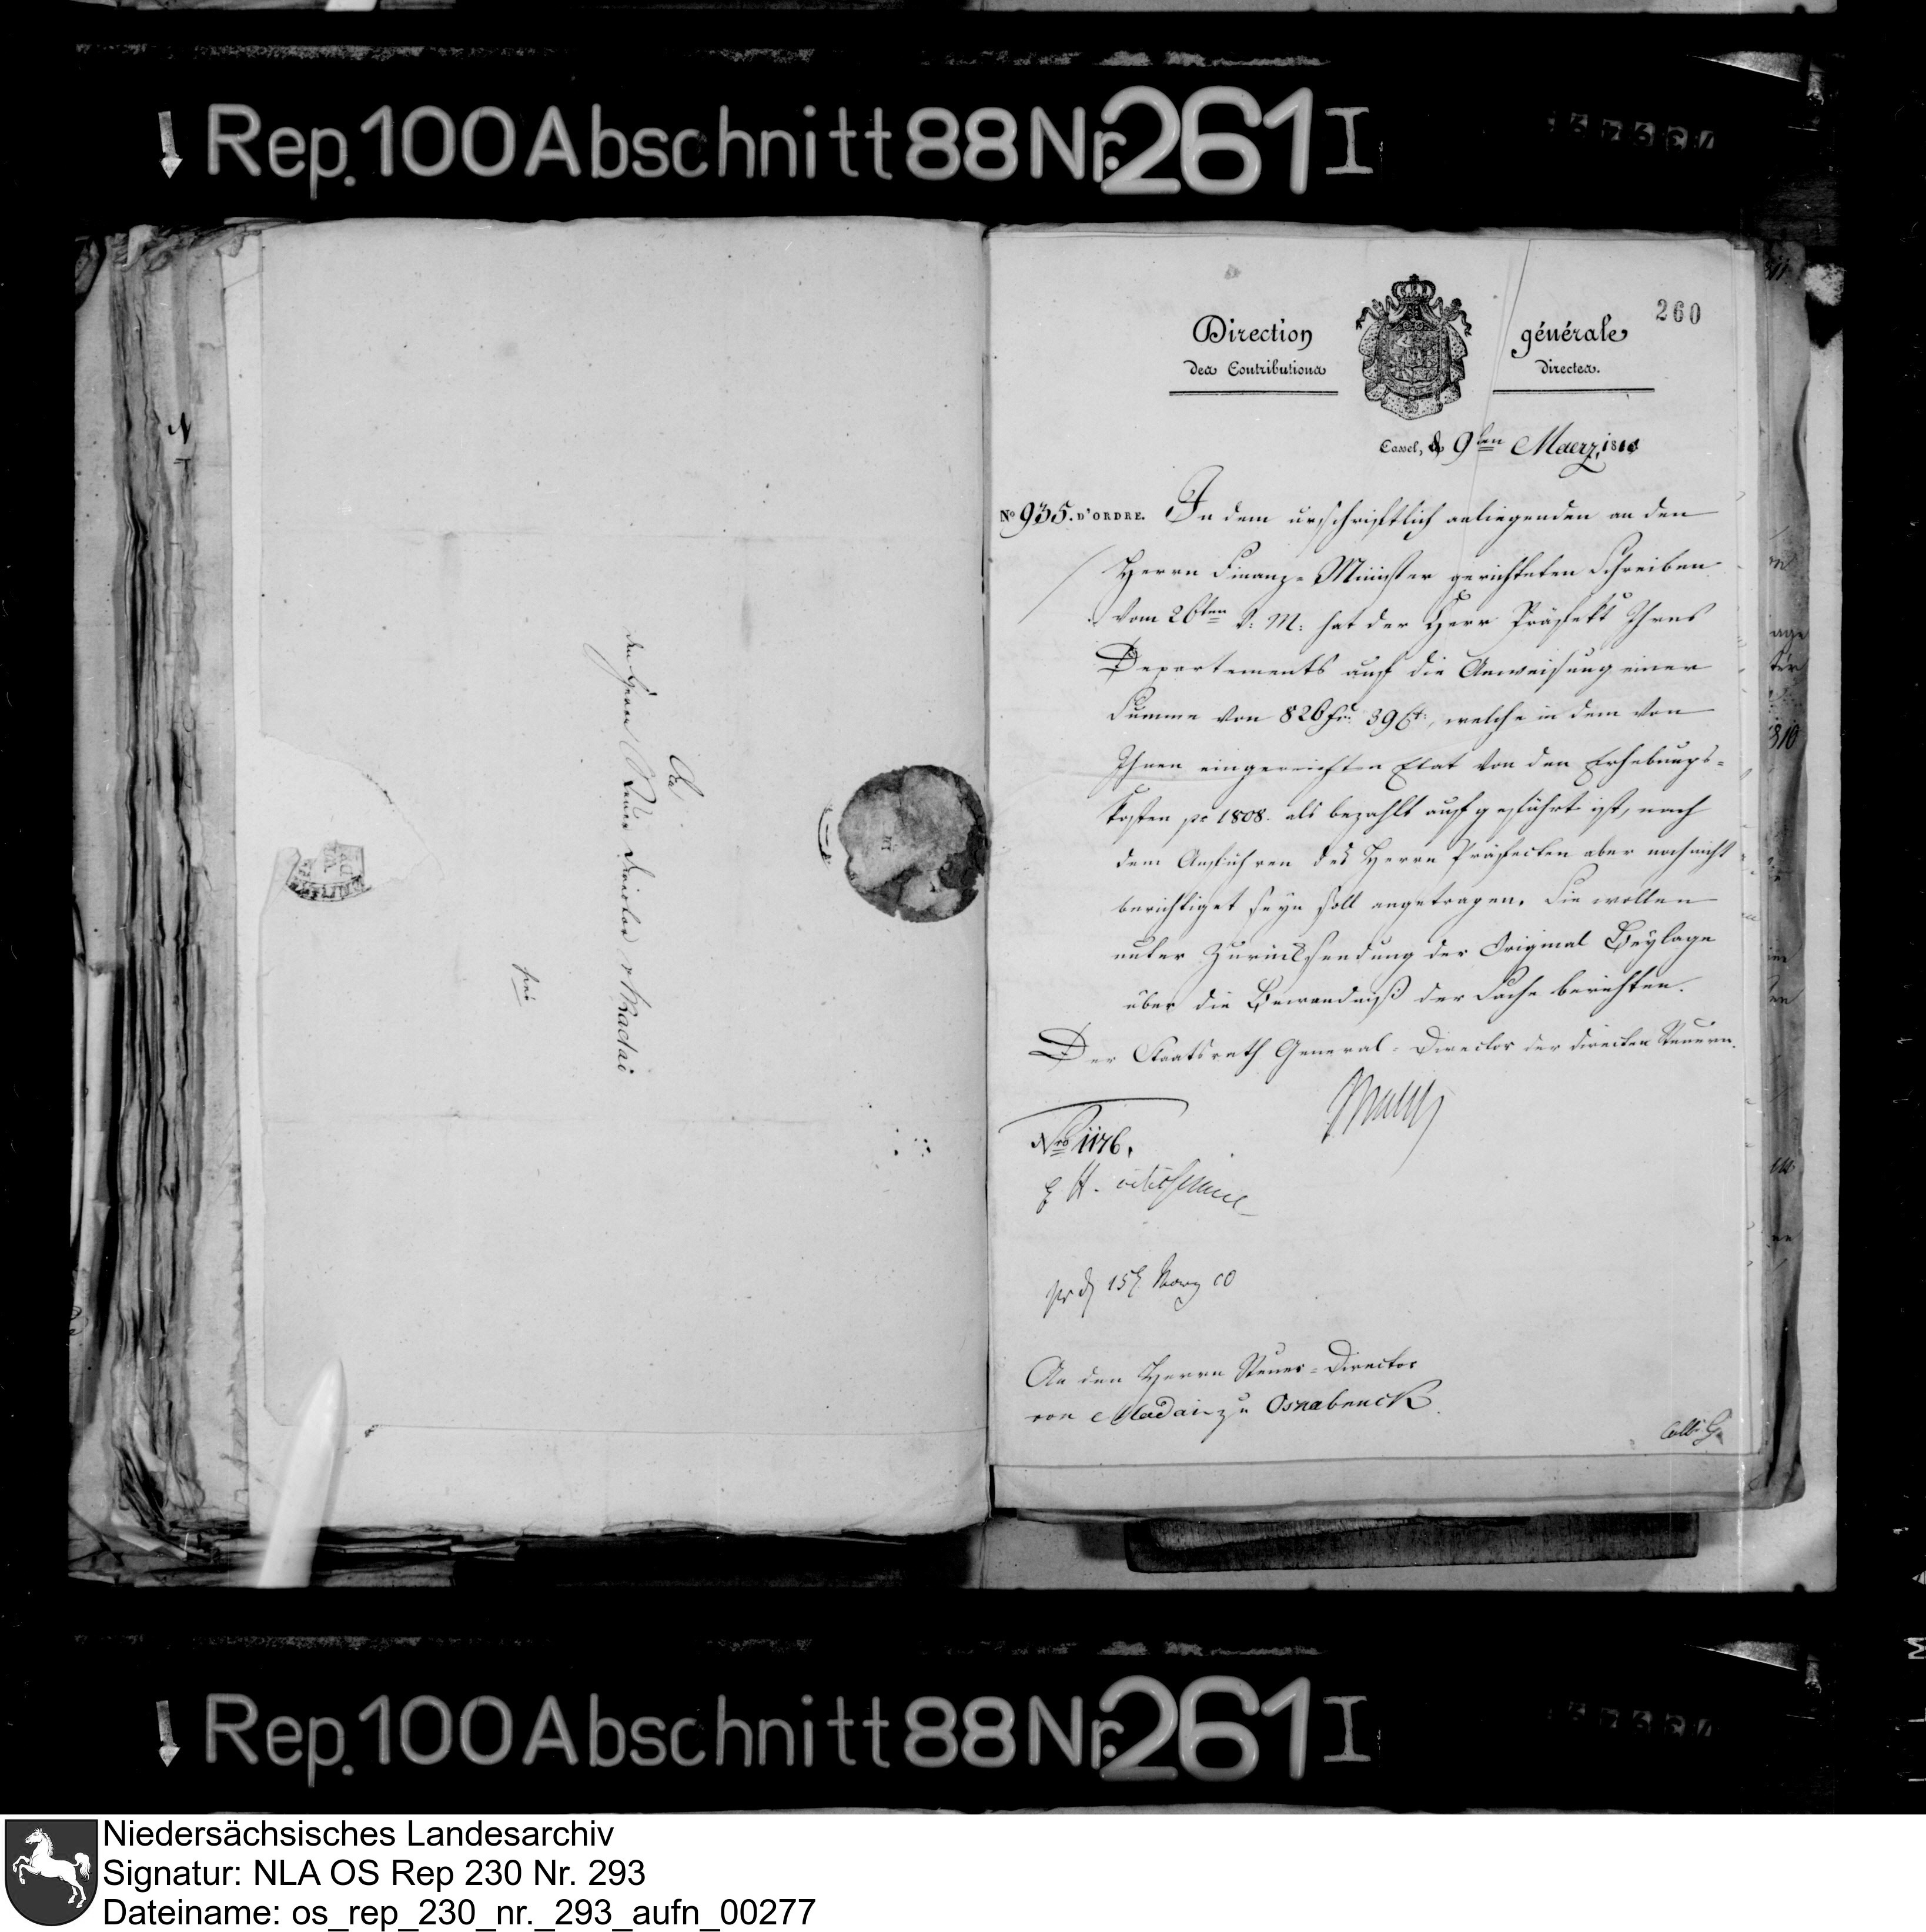 Rep. 100 Abschnitt 88 Nr. 261 I
An
den Herrn Steuer Director v Madai
frei
260
Direction générale
des Contributions directes.
Cassel, d 9ten Maerz 1810
No 935. D'ORDRE. In dem urschriftlich anliegenden an den
Herrn Finanz-Minister gerichteten Schreiben
vom 26ten v: M: hat der Herr Präfekt Ihres
Departements auf die Anweisung einer
Summe von 826 fr. 39 Ct:, welche in dem von
Ihnen eingereichten Etat von den Erhebungs-
kosten pr 1808. als bezahlt aufgeführt ist, nach
dem Anführen des Herrn Präfecten aber noch nicht
berichtiget seyn soll angetragen. Sie wollen
unter Zurücksendung der Original Beylage
über die Bewandniß der Sache berichten.
Der Staatsrath General-Director der directen Steuern.
Nro 1176.
citissime
15 März 10
An den Herrn Steuer-Director
von Madai zu Osnabruck.
Rep. 100 Abschnitt 88 Nr. 261 I
Niedersächsisches Landesarchiv
Signatur: NLA OS Rep 230 Nr. 293
Dateiname: os_rep_230_nr._293_aufn_00277